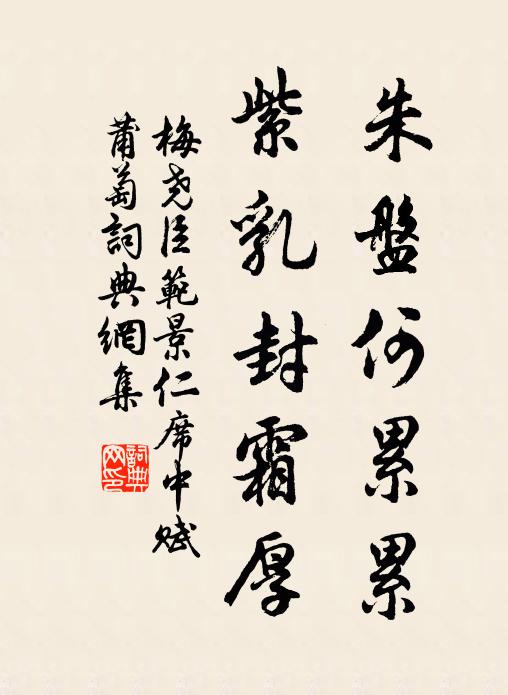 朱盤何累累
紫乳封霜厚
梅堯臣範景仁席中賦
葡萄詞典網集
詞典网印